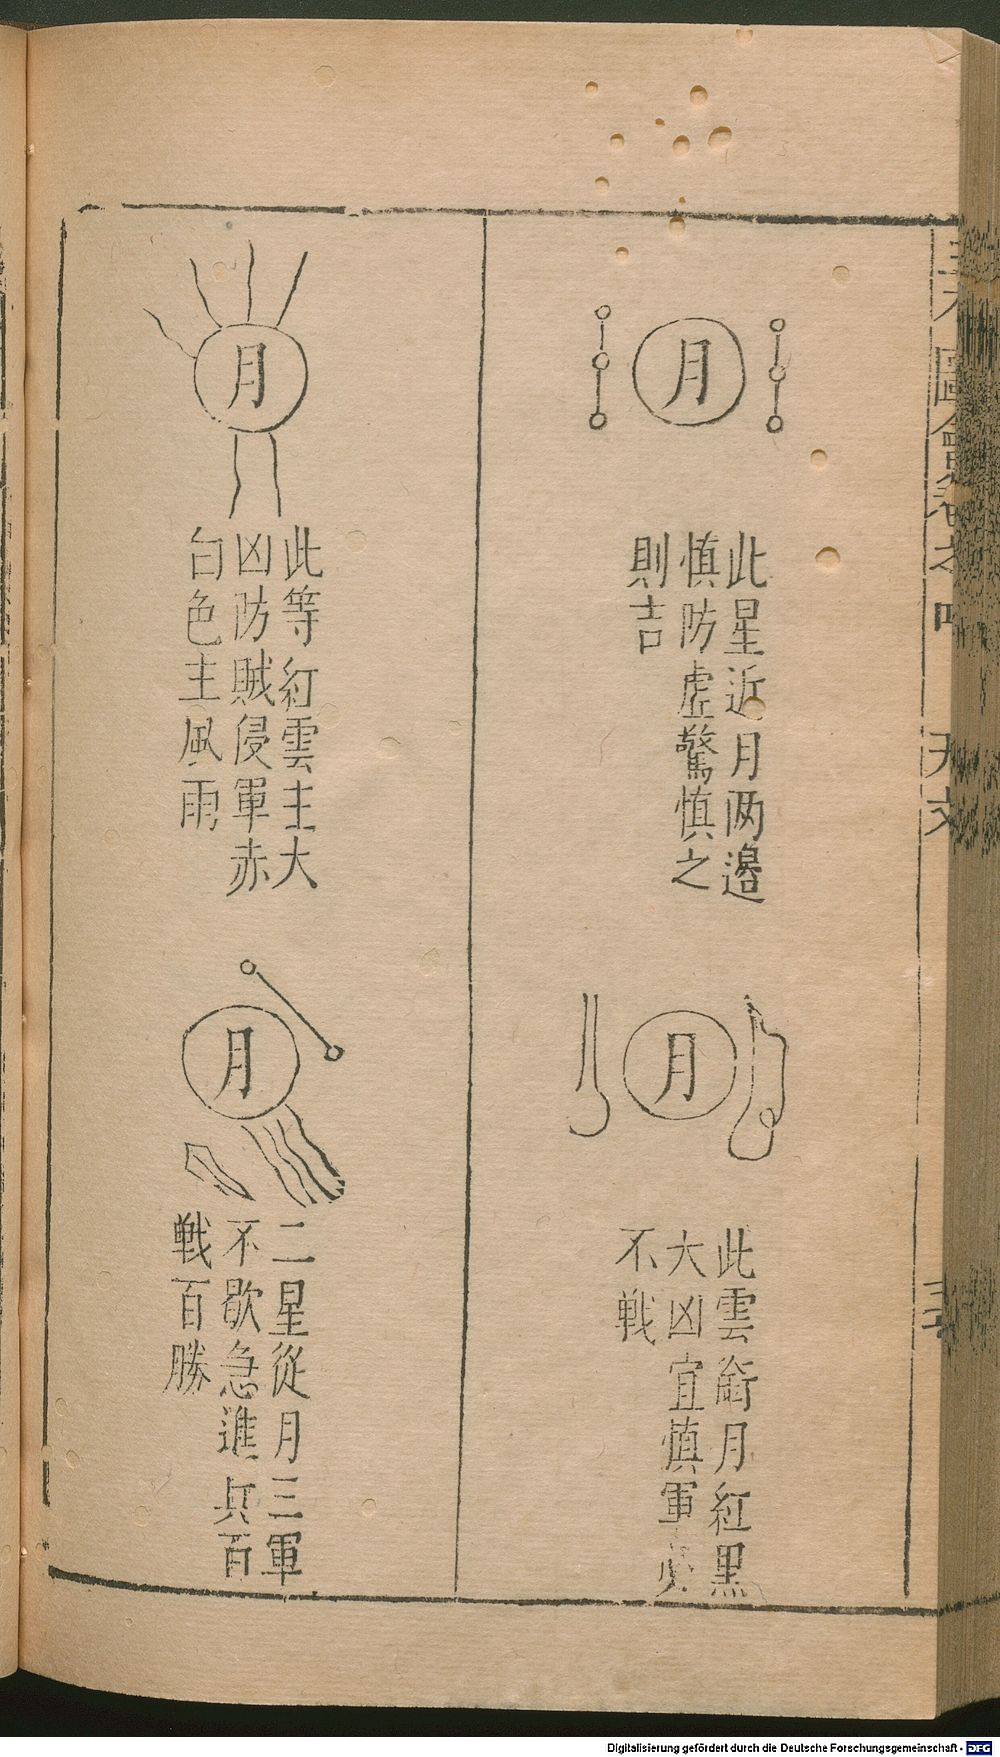 月
此星近月两邉
慎防虚驚慎之
則吉
月
此雲銜月紅黒
大凶宜慎軍必
不戦
月
此等紅雲主大
凶防賊侵軍赤
白色主風雨
月
二星從月三軍
不歇急進兵百
戦百勝
圖會
天文
Digitalisierung gefördert durch die Deutsche Forschungsgemeinschaft - DFG